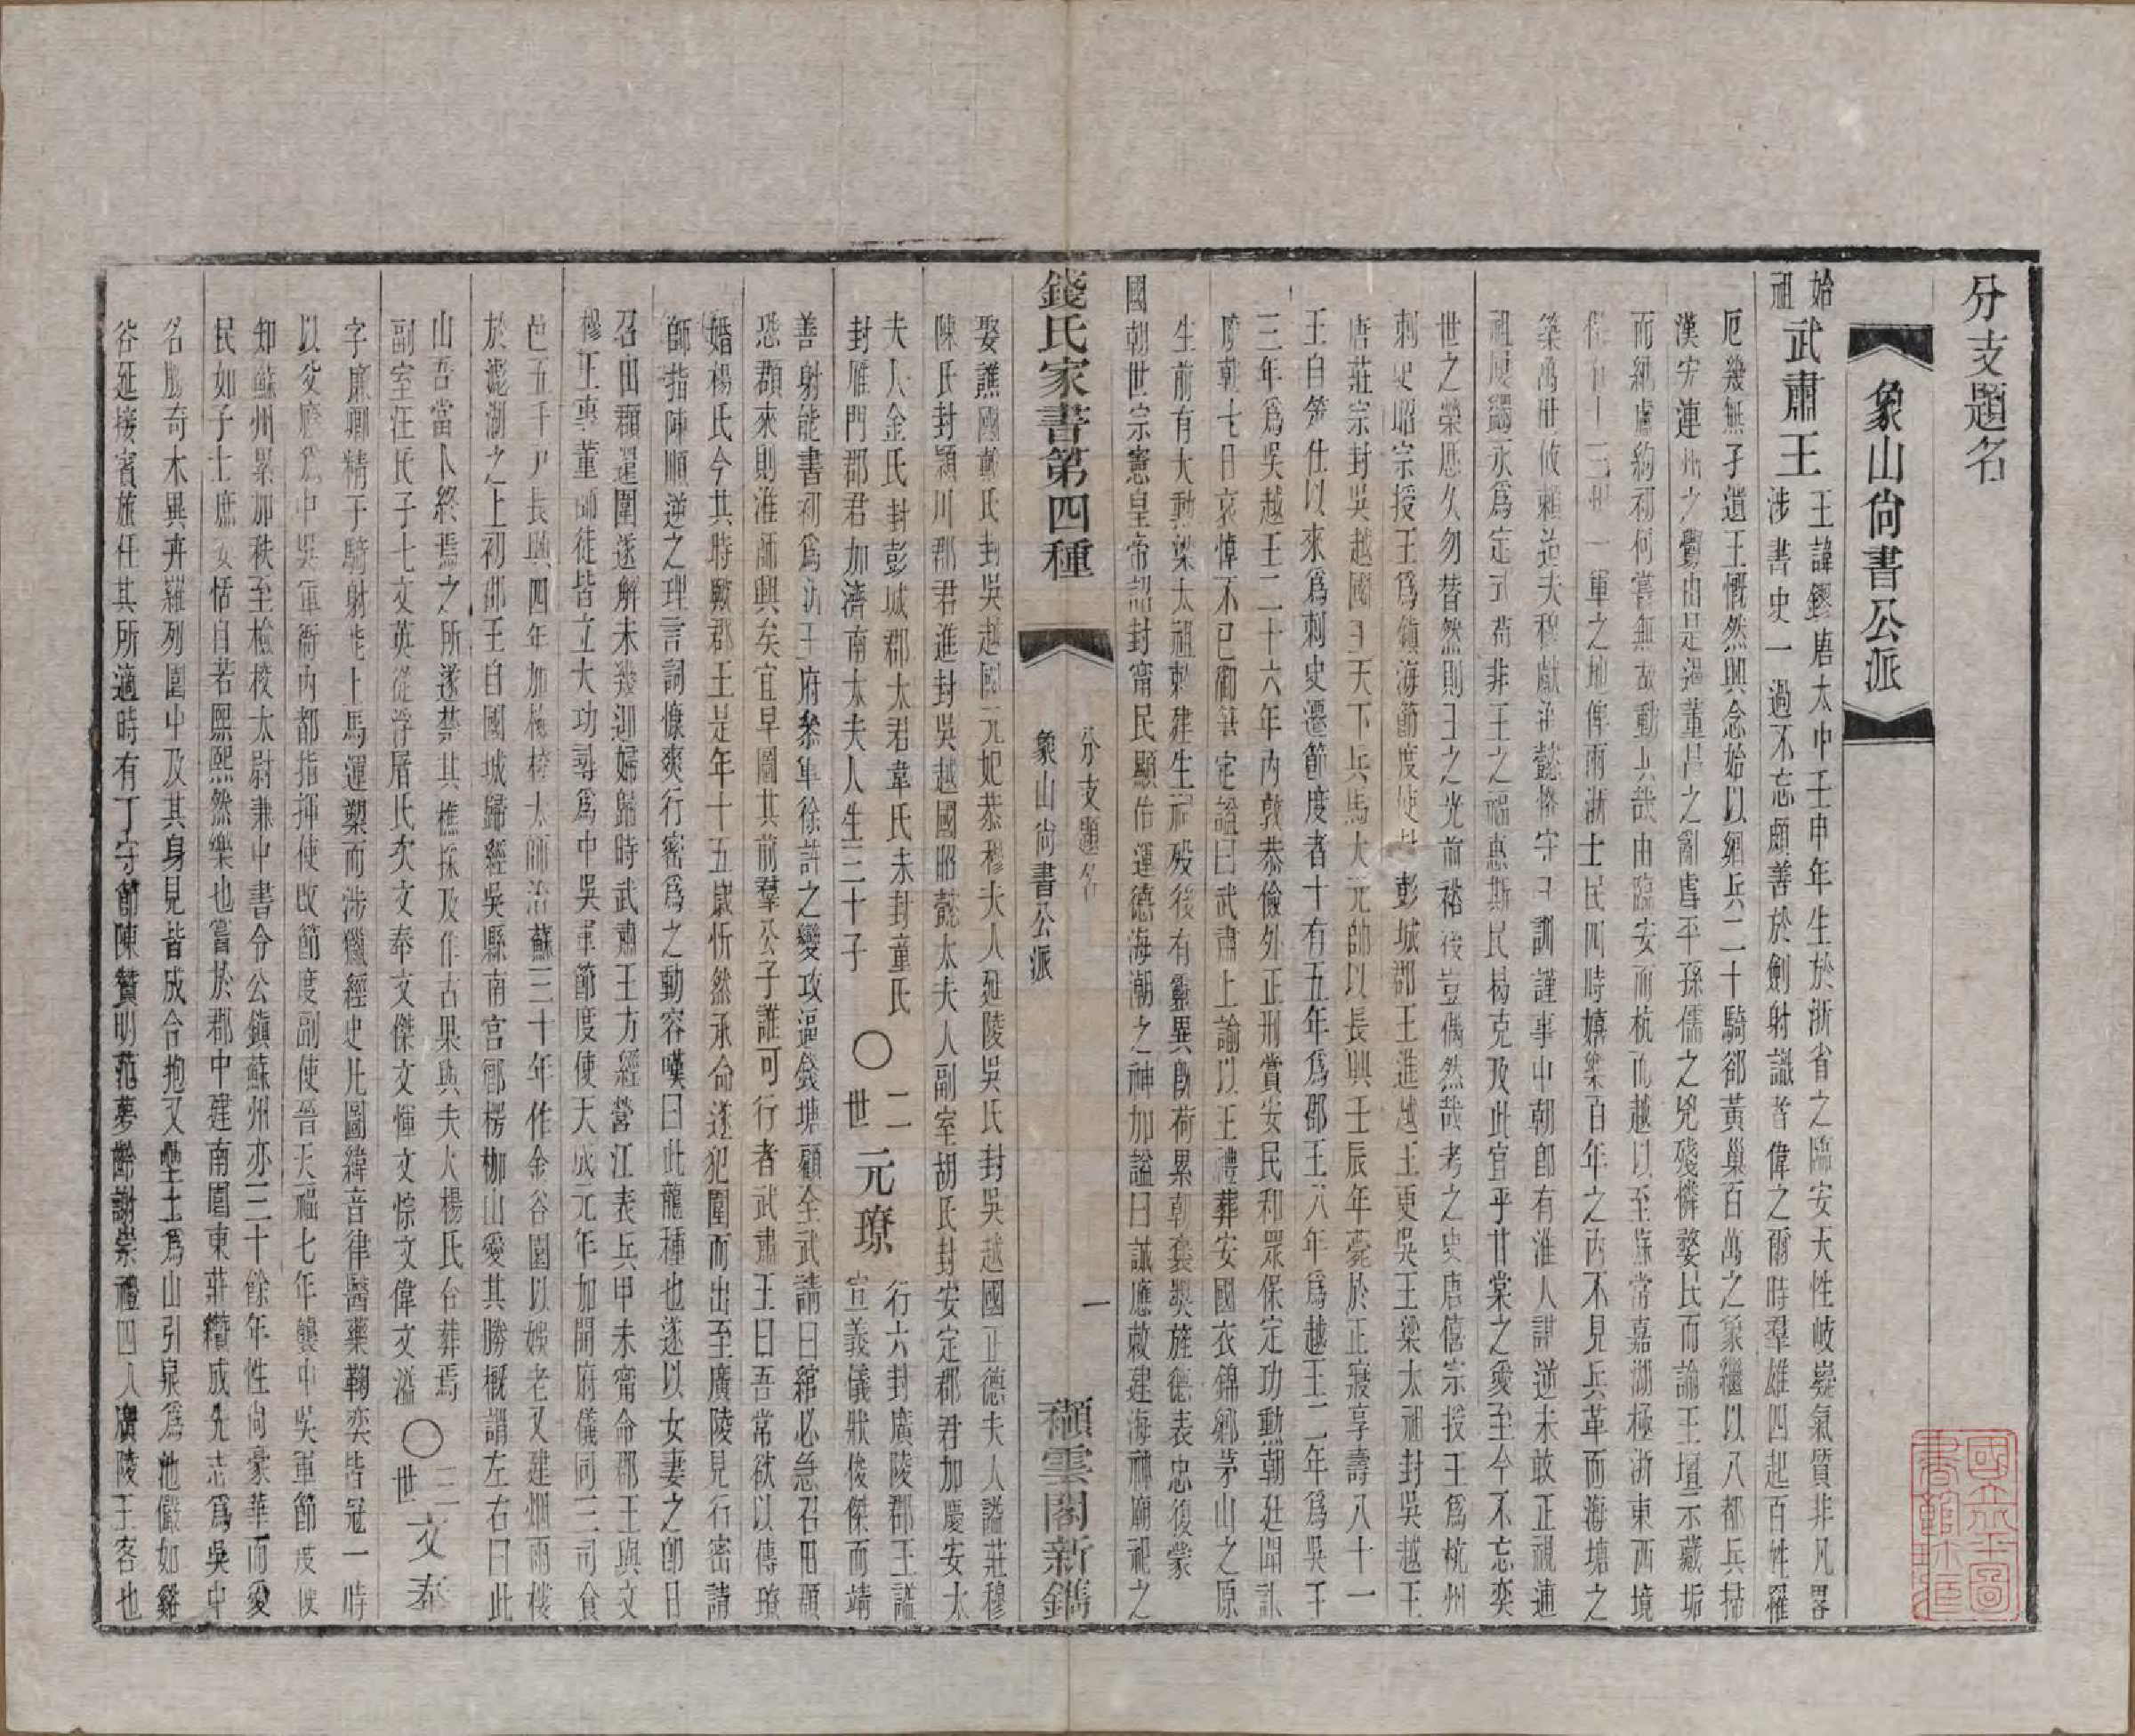 分支題名
象山尙書公派
始祖 武肅王
王諱鏐唐太中壬申年生於浙省之臨安天性岐嶷氣質非凡畧
涉書史一過不忘頗善於劍射識者偉之爾時羣雄四起百姓罹
厄幾無孑遺王慨然興念始以鄉兵二十騎郤黃巢百萬之衆繼以八都兵掃
漢宏連州之釁由是遏董昌之亂虐平孫儒之兇殘憐婺民而諭王壇示藏垢
而納盧約初何嘗無故動兵哉由臨安而杭而越以至蘇常嘉湖極浙東西境
一軍之地俾兩浙士民四時嬉樂百年之內不見兵革而海塘之
築萬世攸賴迨夫程獻 懿恪守王訓謹事中朝卽有淮人謀逆未敢正視逋
祖屢蠲永爲定式苟非王之福惠斯民曷克及此宜乎甘棠之愛至今不忘奕
世之榮歷久勿替然則王之光前裕後豈偶然哉考之史唐僖宗授王爲杭州
刺史昭宗授王爲鎮海節度使封彭城郡王進越王更吳王梁太祖封吳越王
唐莊宗封吳越國王天下兵馬大元帥以長興壬辰年薨於正寢享壽八十一
王自筮仕以來爲刺史遷節度者十有五年爲郡王八年爲越王二年爲吳王
三年爲吳越王二十六年內敦恭儉外正刑賞安民和眾保定功勳朝廷聞訃
廢朝七日哀悼不已御筆定諡曰武肅上諭以王禮葬安國衣錦鄉茅山之原
生前有大勳梁太祖敕建生祠歿後有靈異旣荷累朝褒奬旌德表忠復蒙
國朝世宗憲皇帝詔封甯民顯佑運德海潮之神加諡曰誠應敕建海神廟祀之
錢氏家書第四種
分支題名
象山尙書公派
一
穎雲閣新鐫
娶譙國戴氏封吳越國元妃恭穆夫人延陵吳氏封吳越國正德夫人諡莊穆
陳氏封潁川郡君進封吳越國昭懿太夫人副室胡氏封安定郡君加慶安太
夫人金氏封彭城郡太君韋氏未封童氏
封雁門郡君加濟南太夫人生三十子
〇二世 元璙
行六封廣陵郡王諡
宣義儀狀俊傑而靖
善射能書初爲沂王府參軍徐許之變攻逼錢塘顧全武請曰綰必急召田頵
恐頵來則淮師興矣宜早圖其前羣公子誰可行者武肅王曰吾常欲以傳璙
婚楊氏今其時歟郡王是年十五歲忻然承命遂犯圍而出至廣陵見行密請
師指陳順逆之理言詞慷爽行密爲之動容嘆曰此龍種也遂以女妻之卽日
召田頵還圍遂解未幾迎婦歸時武肅王方經營江表兵甲未甯命郡王與文
穆王專董師徒皆立大功尋爲中吳軍節度使天成元年加開府儀同三司食
邑五千戸長興四年加檢校太師治蘇三十年作金谷園以娛老又建烟雨樓
於滮湖之上初郡王自國城歸經吳縣南宮鄉楞枷山愛其勝概謂左右曰此
山吾當卜終焉之所遂禁其樵採及作古果與夫人楊氏合葬焉
副室汪氏子七文英從浮屠氏次文奉文傑文惲文悰文偉文滋
〇三世 文奉
字廉卿精于騎射能上馬運槊而涉獵經史凡圖緯音律醫藥鞠奕皆冠一時
以父廕爲中吳軍衙內都指揮使改節度副使晉天福七年襲中吳軍節度使
知蘇州累加秩至檢校太尉兼中書令公鎮蘇州亦三十餘年性尙豪華而愛
民如子士庶安恬自若熙熙然樂也嘗於郡中建南園東莊纘成先志爲吳中
名勝奇木異卉羅列園中及其身見皆成合抱又壘土爲山引泉爲池儼如谿
谷延接賓旅任其所適時有丁守節陳贊明范夢齡謝崇禮四人廣陵王客也